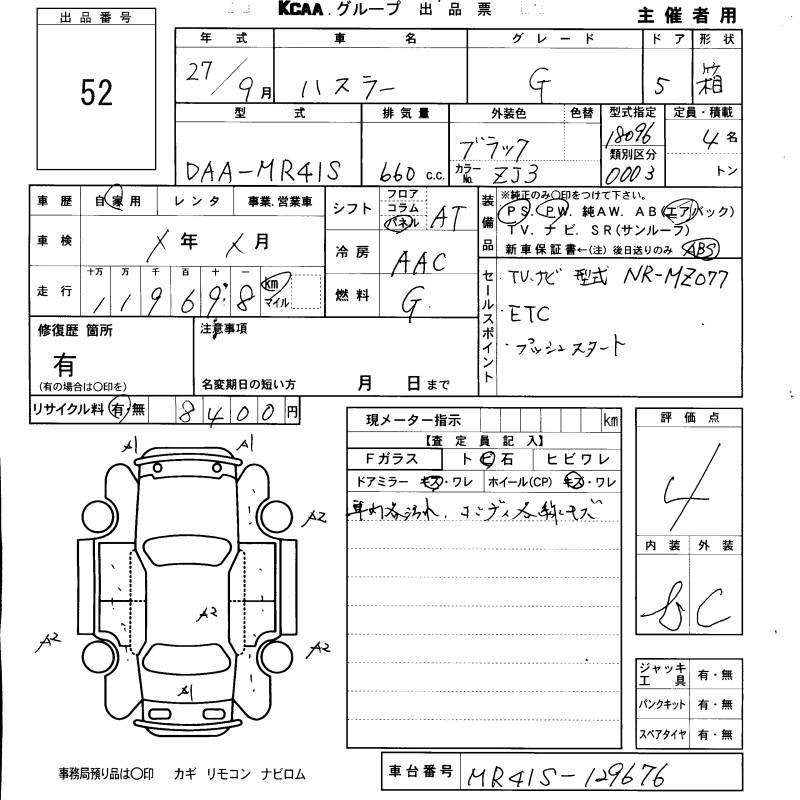 KCAA.グループ 出品票
主催者用
出品番号
52
年式 車名 グレード ドア 形状
27/9月 ハスラー G 5 箱
型式 排気量 外装色 色替 型式指定 定員・積載
DAA-MR41S 660 c.c. ブラック 18096 4名
カラーNo. ZJ3 類別区分 0003 トン
車歴 自家用 レンタ 事業.営業車
車検 X年 X月
走行 十万 万 千 百 十 一
119698 km マイル
シフト フロア コラム パネル AT
冷房 AAC
燃料 G.
装備品 ※純正のみ○印をつけて下さい。
PS. PW. 純AW. AB(エアバック)
TV. ナビ. SR(サンルーフ)
新車保証書←(注) 後日送りのみ ABS
セールスポイント
TV.ナビ 型式 NR-MZ077
・ETC
・プッシュスタート
修復歴 箇所
有
(有の場合は○印を)
注意事項
名変期日の短い方 月 日まで
リサイクル料 有・無 8400円
現メーター指示 km
【査定員記入】
Fガラス トビ石 ヒビワレ
ドアミラー キズ・ワレ ホイール(CP) キズ・ワレ
車内各汚れ、 各 キズ
評価点
4
内装 外装
C
A1 A1
A2
A2
A2 A2
A1
ジャッキ工具 有・無
パンクキット 有・無
スペアタイヤ 有・無
事務局預り品は○印 カギ リモコン ナビロム
車台番号 MR41S-129676